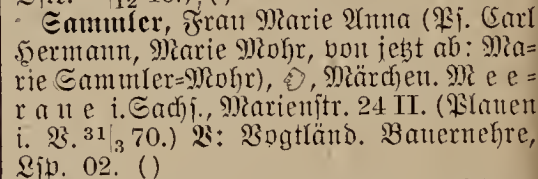 Sammler, Frau Marie Anna (Pf. Carl
Hermann, Marie Mohr, von jetzt ab: Ma=
rie Sammler=Mohr), Märchen. Mee=
rane i. Sachs., Marienstr. 24 II. (Plauen
i. V. 31|3 70.) V: Vogtländ. Bauernehre,
Lip. 02. ()